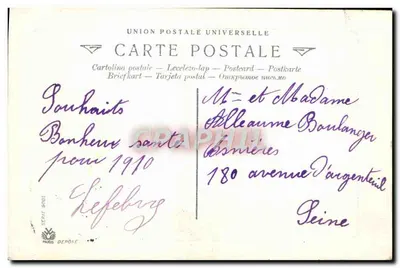 UNION POSTALE UNIVERSELLE
CARTE POSTALE
Cartolina postale — Levelező-lap — Postcard — Postkarte
Briefkart — Tarjeta postal — Открытое письмо
Souhaits
Bonheur santé
pour 1910
Lefebvre
Mme et Madame
Alleaume Boulanger
Asnières
180 avenue d'argenteuil
Seine
DÉPOSÉ